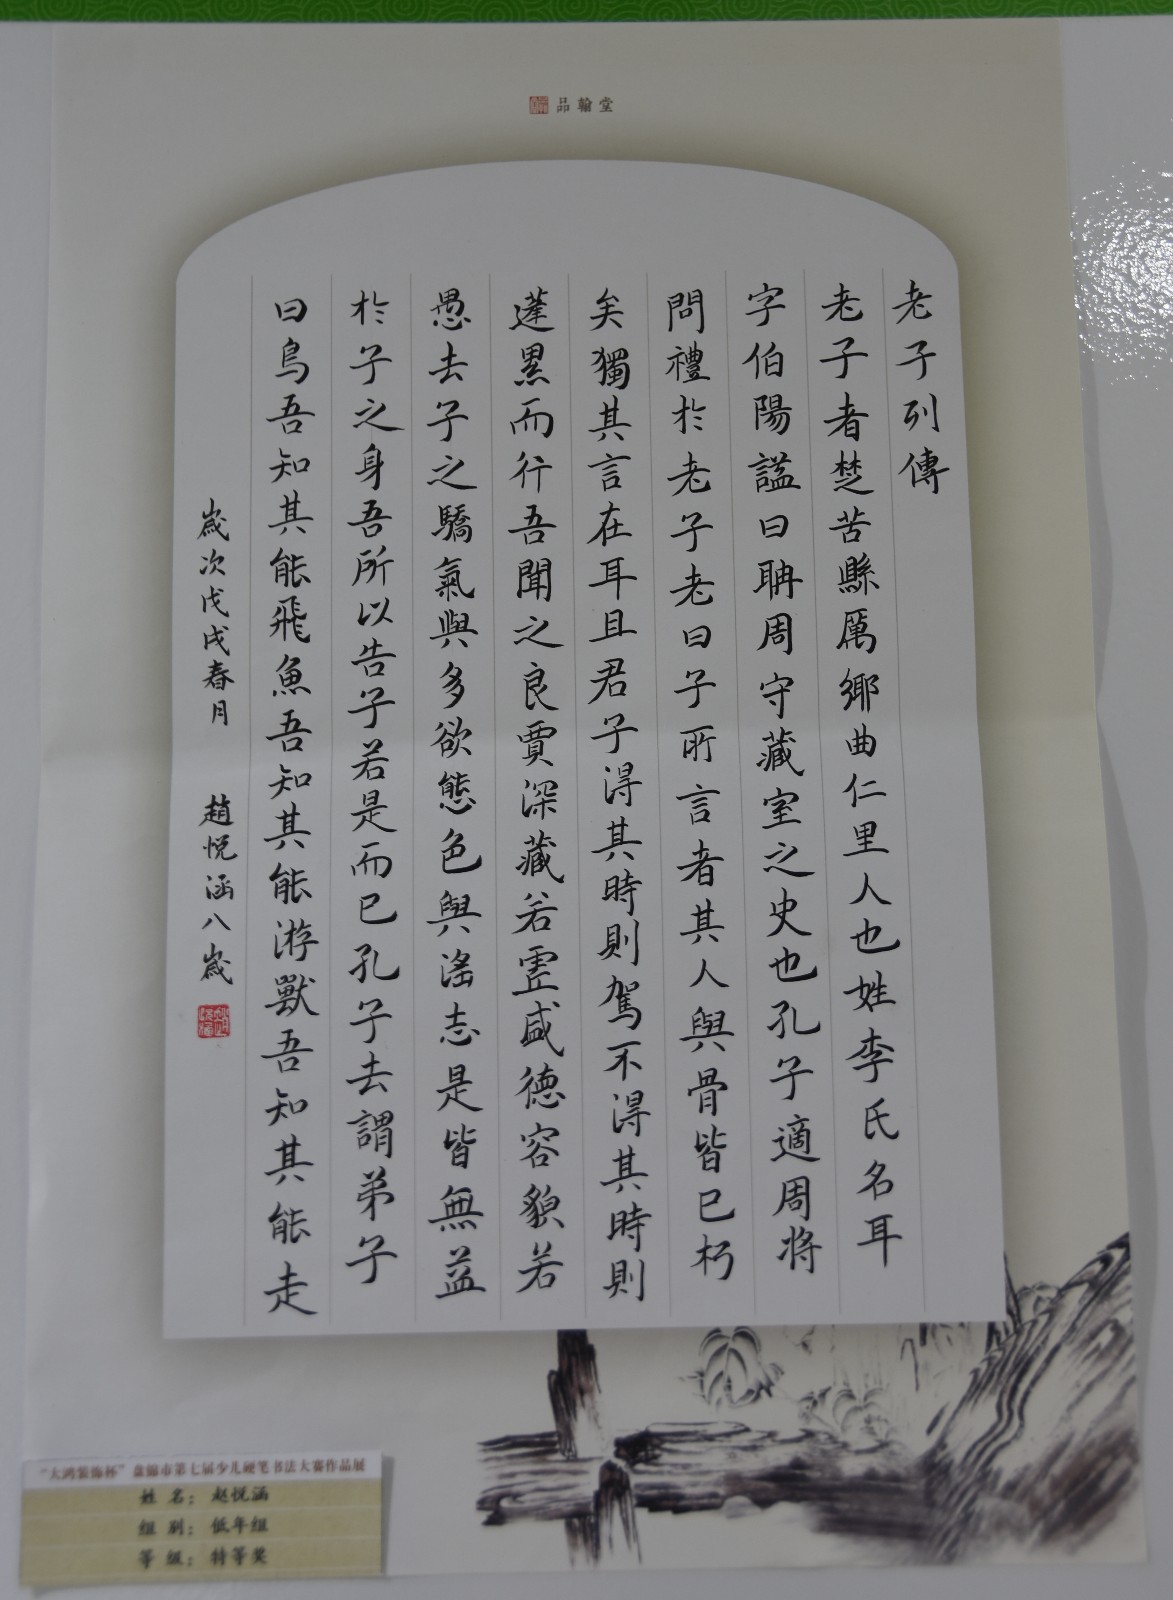 品翰堂
老子列傳
老子者楚苦縣厲鄉曲仁里人也姓李氏名耳
字伯陽謚曰聃周守藏室之史也孔子適周將
問禮於老子老曰子所言者其人與骨皆已朽
矣獨其言在耳且君子得其時則駕不得其時則
蓬累而行吾聞之良賈深藏若虛盛德容貌若
愚去子之驕氣與多欲態色與淫志是皆無益
於子之身吾所以告子若是而已孔子去謂弟子
曰鳥吾知其能飛魚吾知其能游獸吾知其能走
歲次戊戌春月 趙悅涵八歲
“大鸿装饰杯”盘锦市第七届少儿硬笔书法大赛作品展
姓 名：赵悦涵
组 别：低年组
等 级：特等奖